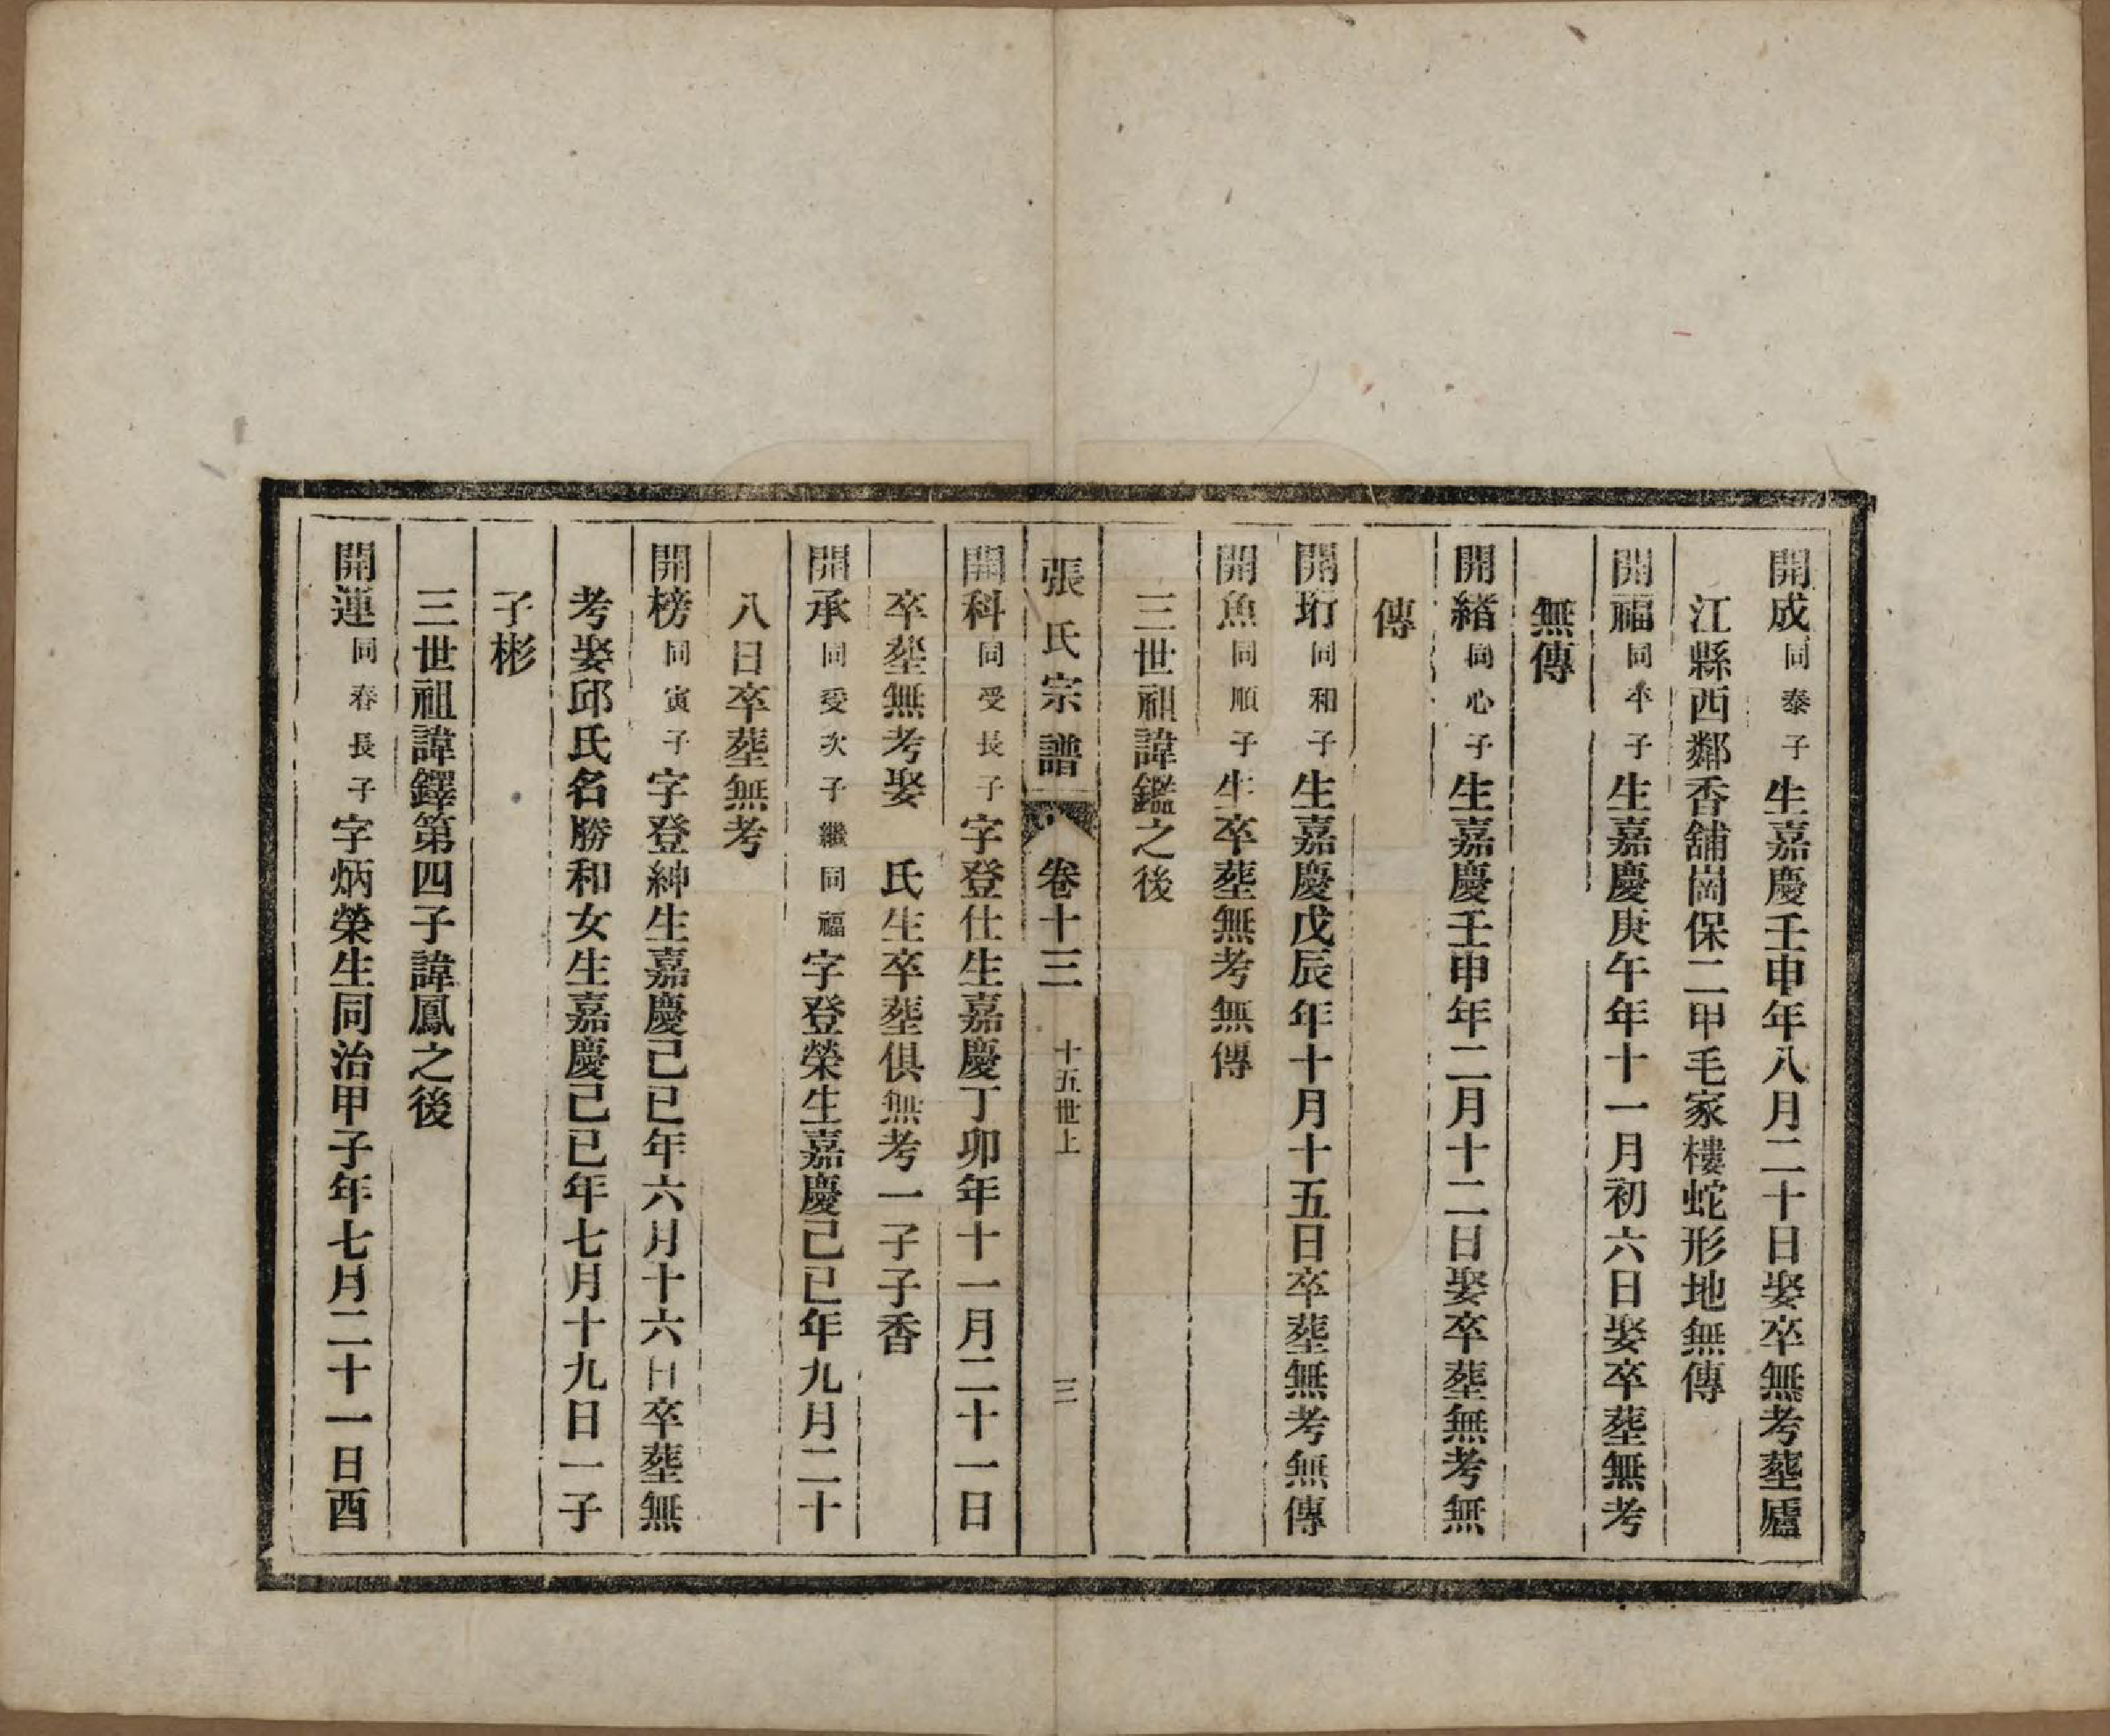 開成同泰子生嘉慶壬申年八月二十日娶卒無考塟廬
江縣西鄰香舖崗保二甲毛家樓蛇形地無傳
開福同本子生嘉慶庚午年十一月初六日娶卒塟無考
無傳
開緒同心子生嘉慶壬申年二月十二日娶卒塟無考無
傳
開珩同和子生嘉慶戊辰年十月十五日卒塟無考無傳
開魚同順子生卒塟無考無傳
三世祖諱鑑之後
張氏宗譜 卷十三 十五世上 三
開科同受長子字登仕生嘉慶丁卯年十一月二十一日
卒塟無考娶 氏生卒塟俱無考一子子香
開承同受次子繼同福字登榮生嘉慶己巳年九月二十
八日卒塟無考
開榜同寅子字登紳生嘉慶己巳年六月十六日卒塟無
考娶邱氏名勝和女生嘉慶己巳年七月十九日一子
子彬
三世祖諱鐸第四子諱鳳之後
開運同春長子字炳榮生同治甲子年七月二十一日酉